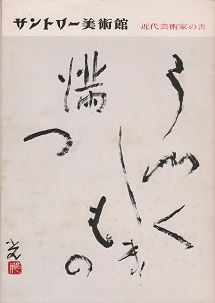 サントリー美術館 近代芸術家の書
うつく
しきもの
満つ
光